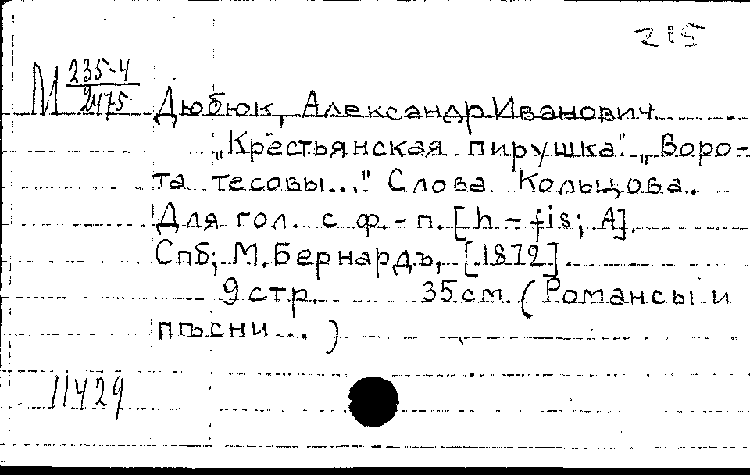 215
М 235-4
2475
Дюбюк, Александр Иванович
„Крестьянская пирушка". „Воро-
та тесовы..." Слова Кольцова.
Для гол. с ф.-п. [h – fis; A].
Спб; М. Бернардъ, [1872].
9 стр. 35 см. (Романсы и
пѣсни...)
11429